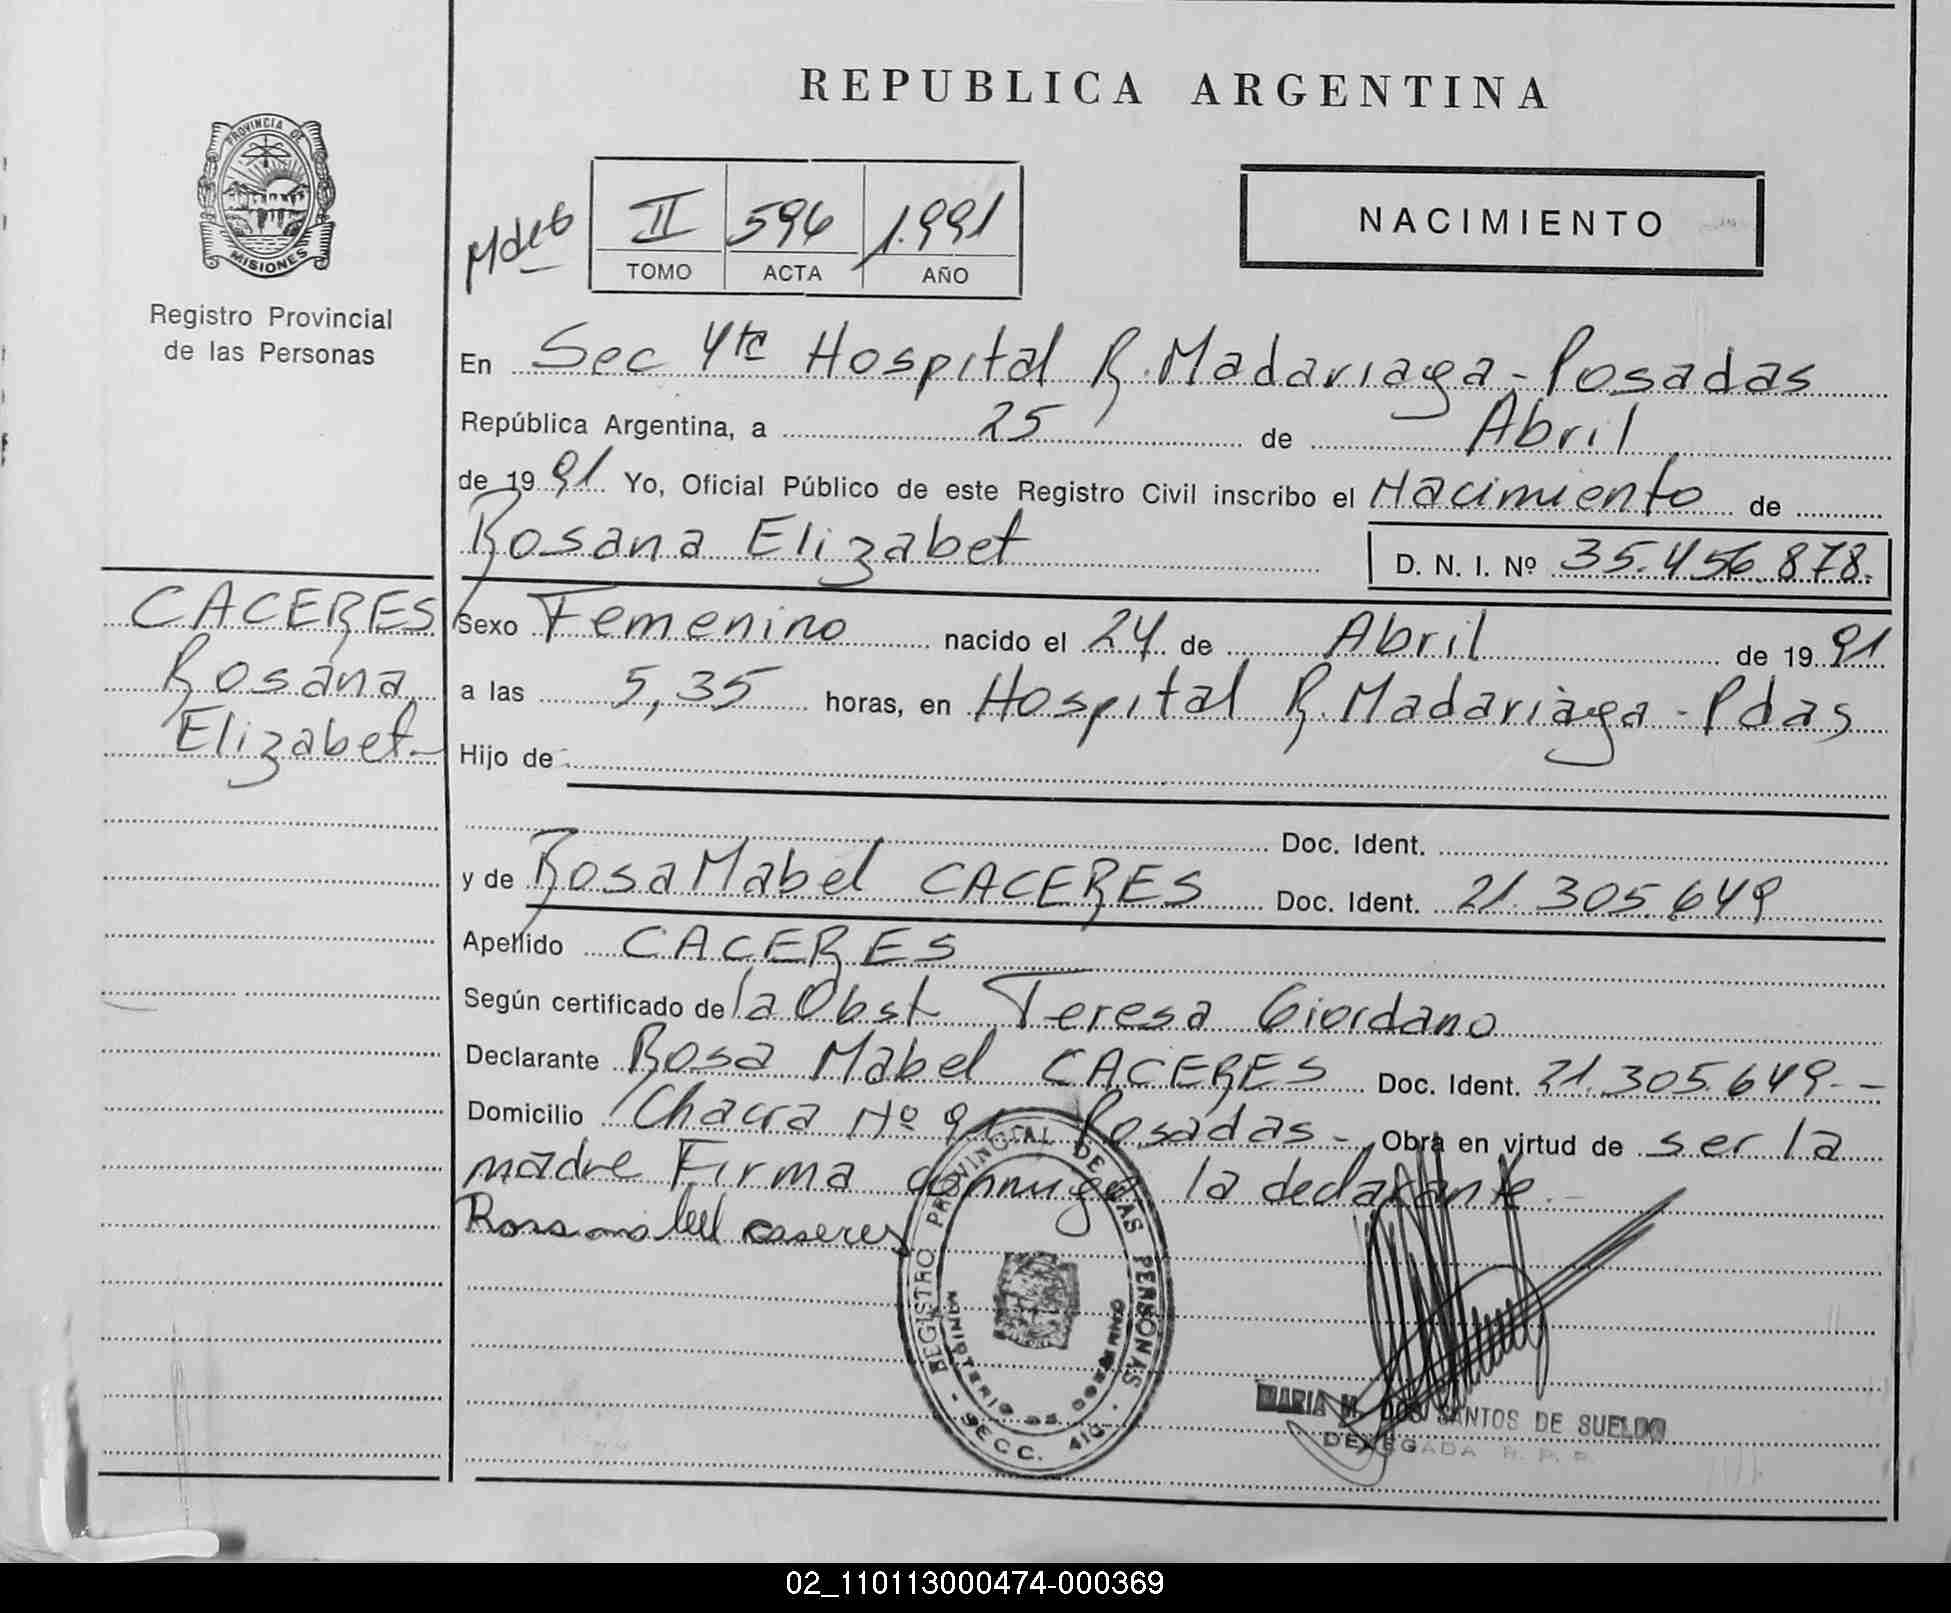 REPUBLICA ARGENTINA
PROVINCIA DE
MISIONES
Registro Provincial
de las Personas
II 596 1.991
TOMO ACTA AÑO
NACIMIENTO
En Sec 4ta Hospital R. Madariaga - Posadas
República Argentina, a 25 de Abril
de 1991 Yo, Oficial Público de este Registro Civil inscribo el Nacimiento de
Rosana Elizabet D. N. I. Nº 35.456.878.
CACERES
Rosana
Elizabet-
Sexo Femenino nacido el 24 de Abril de 1991
a las 5,35 horas, en Hospital R. Madariaga - Pdas
Hijo de
Doc. Ident.
y de Rosa Mabel CACERES Doc. Ident. 21.305.649
Apellido CACERES
Según certificado de la Obst Teresa Giordano
Declarante Rosa Mabel CACERES Doc. Ident. 21.305.649.--
Domicilio Chacra Nº 91 Posadas - Obra en virtud de ser la
madre Firma conmigo la declarante.-
REGISTRO PROVINCIAL DE LAS PERSONAS
MINISTERIO DE GOBIERNO
SECC. 4ta.
MARIA M. DOS SANTOS DE SUELDO
DELEGADA R. P. P.
02_110113000474-000369